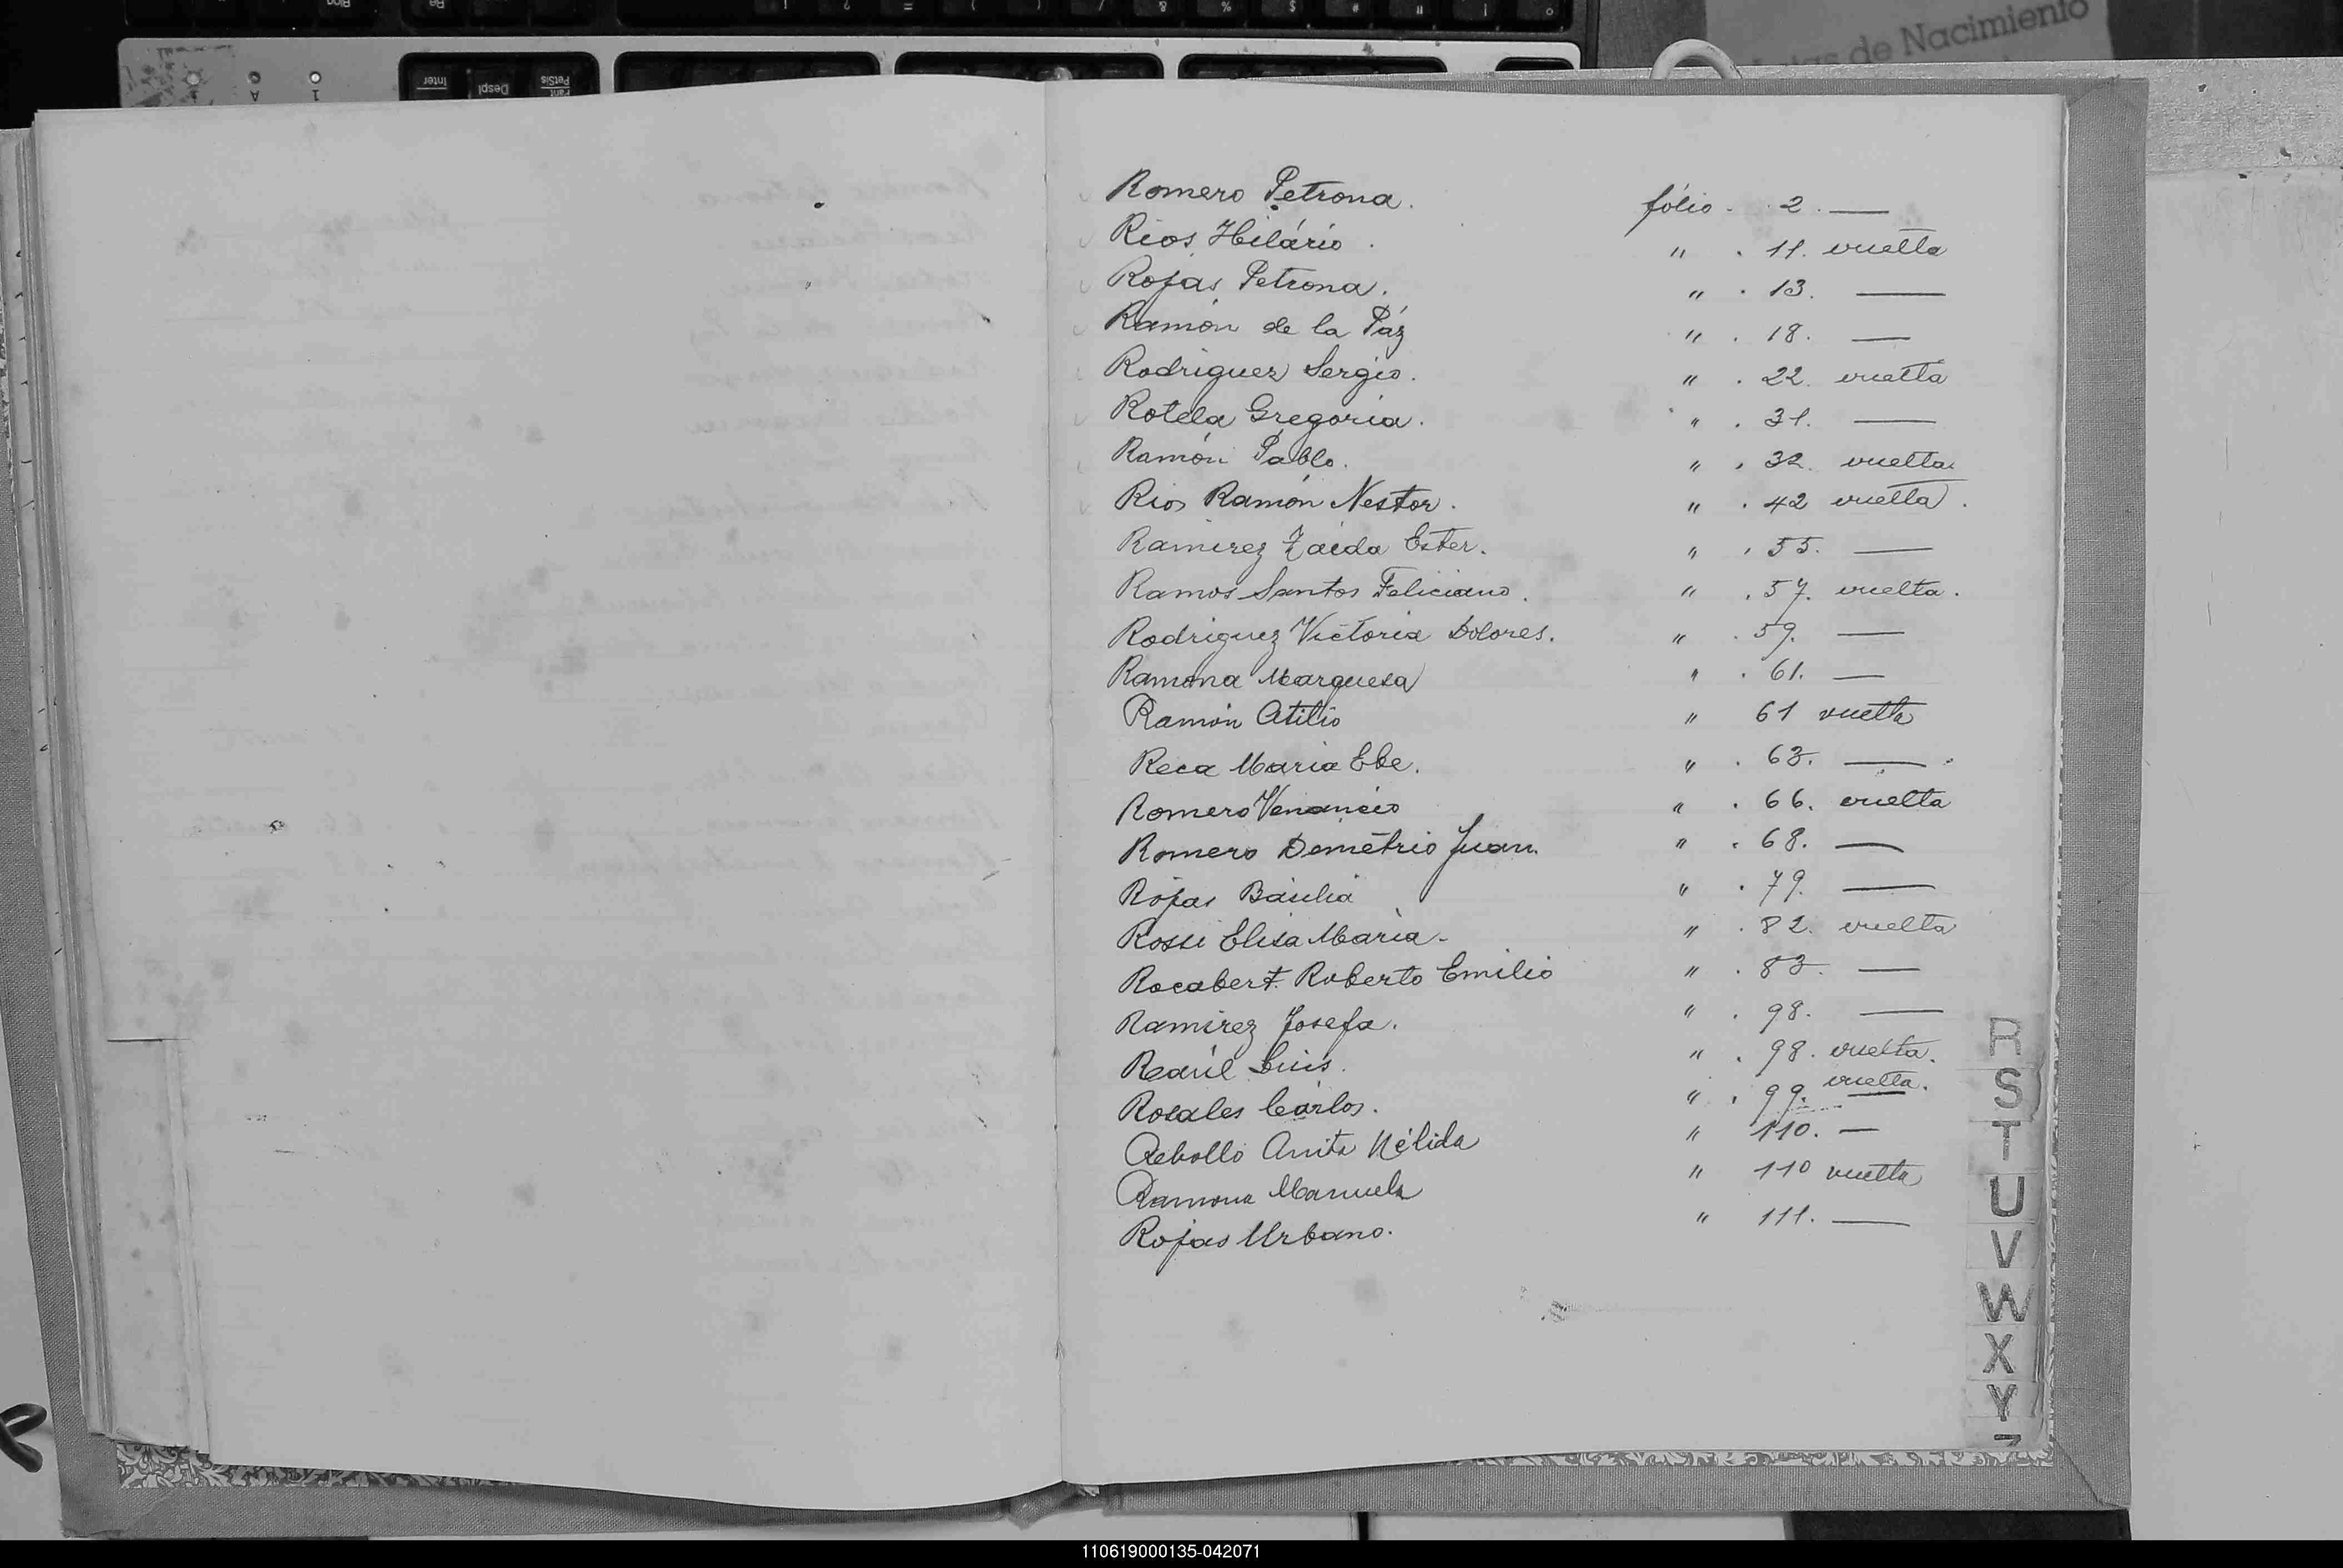 Actas de Nacimiento
Romero Petrona. fólio. 2. —
Rios Hilário. " . 11. vuelta
Rojas Petrona. " . 13. —
Ramón de la Páz " . 18. —
Rodriguez Sergio. " . 22. vuelta
Rotela Gregoria. " . 31. —
Ramón Pablo. " . 32. vuelta.
Rios Ramón Nestor. " . 42 vuelta.
Ramirez Zaida Ester. " . 55. —
Ramos Santos Feliciano. " . 57. vuelta.
Rodriguez Victoria Dolores. " . 59. —
Ramona Marquesa " . 61. —
Ramón Atilio " 61 vuelta
Reca Maria Ebe. " . 63. —
Romero Venancio " . 66. vuelta
Romero Demétrio Juan. " . 68. —
Rojas Basilia " . 79. —
Rossi Elisa Maria. " . 82. vuelta
Rocabert. Roberto Emilio " . 83. —
Ramirez Josefa. " . 98. —
Raúl Luis. " . 98. vuelta.
Rosales Cárlos. " . 99. vuelta.
Rebollo Anita Nélida " 110. —
Ramona Manuela " 110 vuelta
Rojas Urbano. " 111. —
R
S
T
U
V
W
X
Y
Z
110619000135-042071